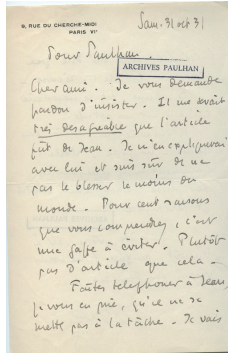 9, RUE DU CHERCHE-MIDI
PARIS VIᵉ
Sam. 31 oct 3
Pour Paulhan.
ARCHIVES PAULHAN
Cher ami. Je vous demande
pardon d'insister. Il me serait
très désagréable que l'article
fût de Jean. Je m'en expliquerai
avec lui et suis sûr de ne
pas le blesser le moins du
monde. Pour cent raisons
que vous comprendrez, c'est
une gaffe à éviter. Plutôt
pas d'article que cela.
Faites telephoner à Jean,
je vous en prie, qu'il ne se
mette pas à la tâche. Je vais